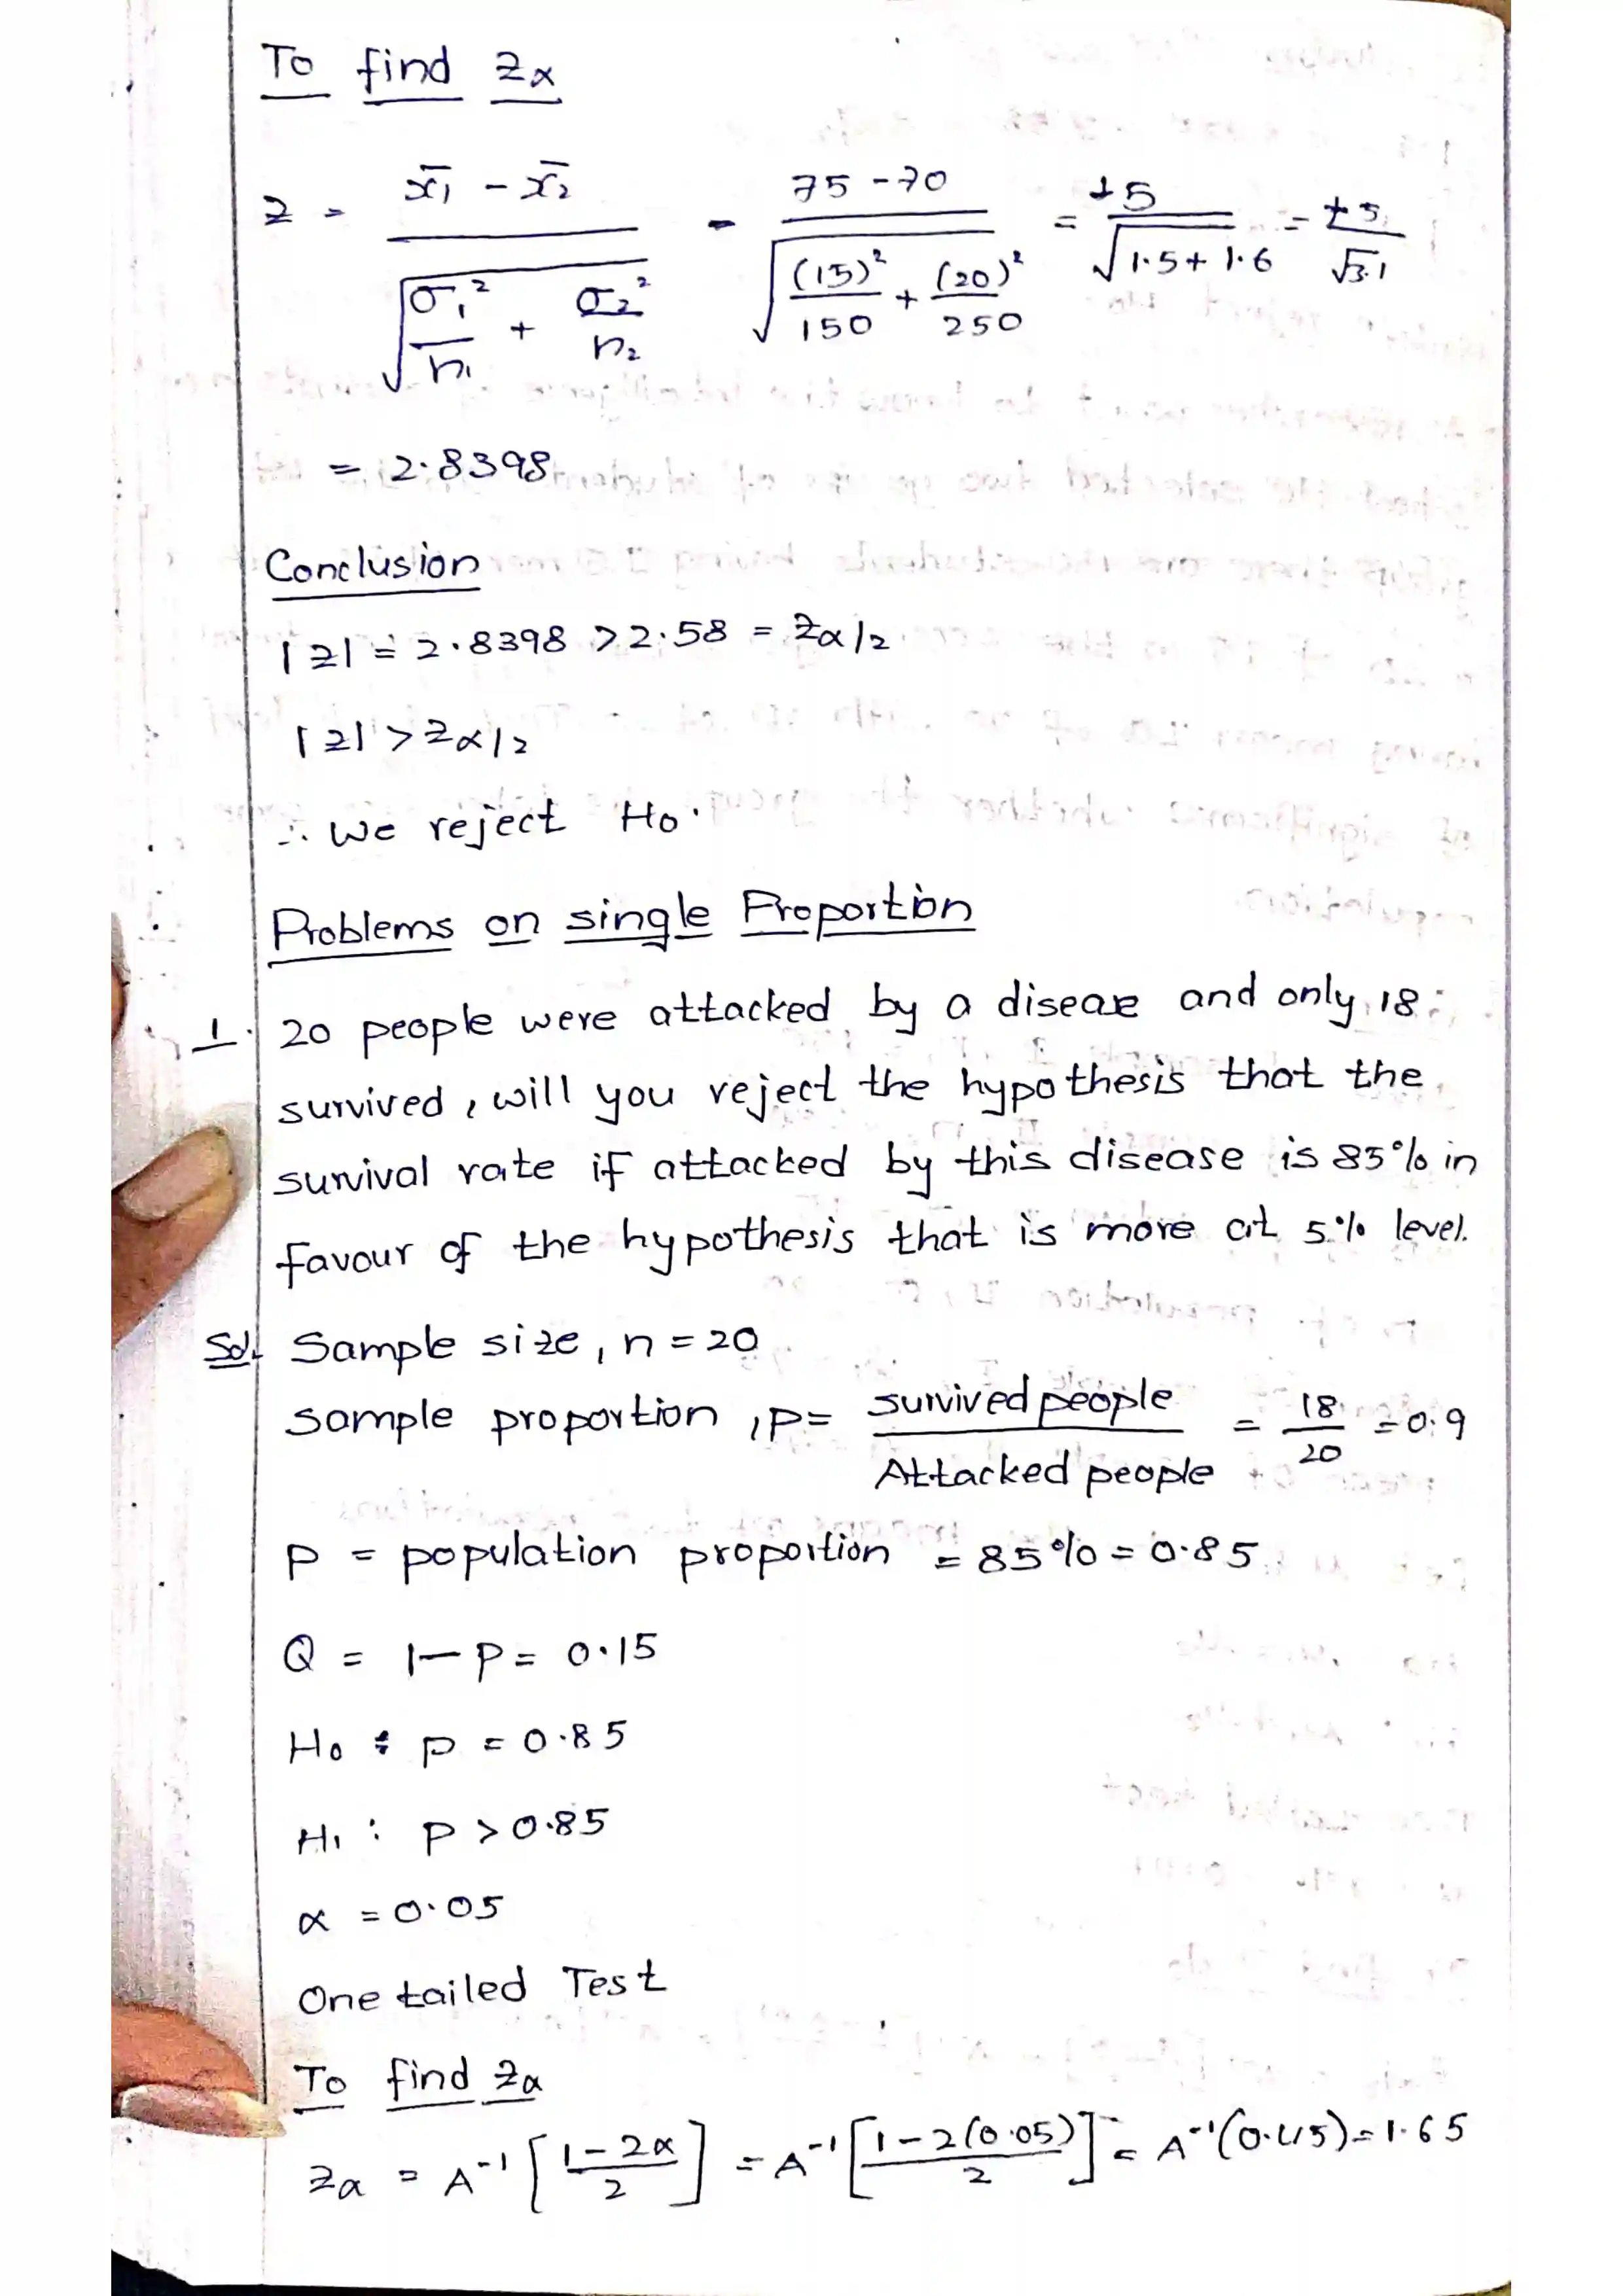 To find Zα
Z = x̄1 - x̄2 / √(σ1²/n1 + σ2²/n2) = 75-70 / √((15)²/150 + (20)²/250) = +5 / √1.5+1.6 = +5 / √3.1
= 2.8398
Conclusion
|Z| = 2.8398 > 2.58 = Zα/2
|Z| > Zα/2
∴ We reject Ho.
Problems on single Proportion
1. 20 people were attacked by a disease and only 18
survived, will you reject the hypothesis that the
survival rate if attacked by this disease is 85% in
favour of the hypothesis that is more at 5% level.
Sol. Sample size, n = 20
sample proportion, p = survived people / Attacked people = 18/20 = 0.9
P = population proportion = 85% = 0.85
Q = 1-P = 0.15
Ho : P = 0.85
H1 : P > 0.85
α = 0.05
One tailed Test
To find Zα
Zα = A⁻¹[1-2α / 2] = A⁻¹[1-2(0.05) / 2] = A⁻¹(0.45) = 1.65